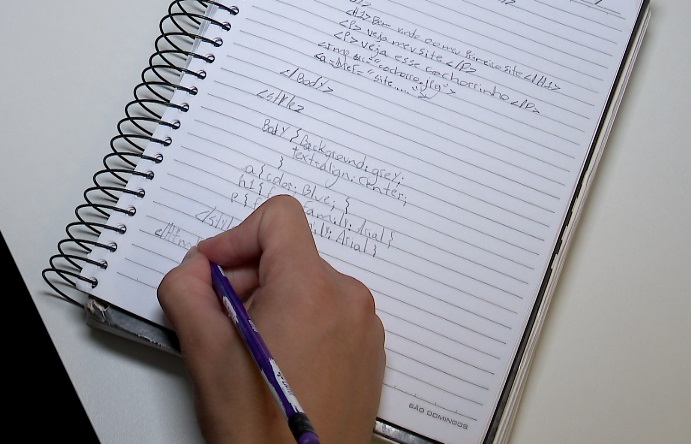 <H1>Bem vindo ao meu primeiro site</H1>
<P> veja meu site </P>
<P> veja esse cachorrinho </P>
<img "cachorro.jpg">
<a = href= "site....">
</Body>
<style>
Body {Background: grey;
text-Align: center;
}
a {color: Blue; {
h1 { Arial}
P { Arial}
</styl
</Htm
SÃO DOMINGOS